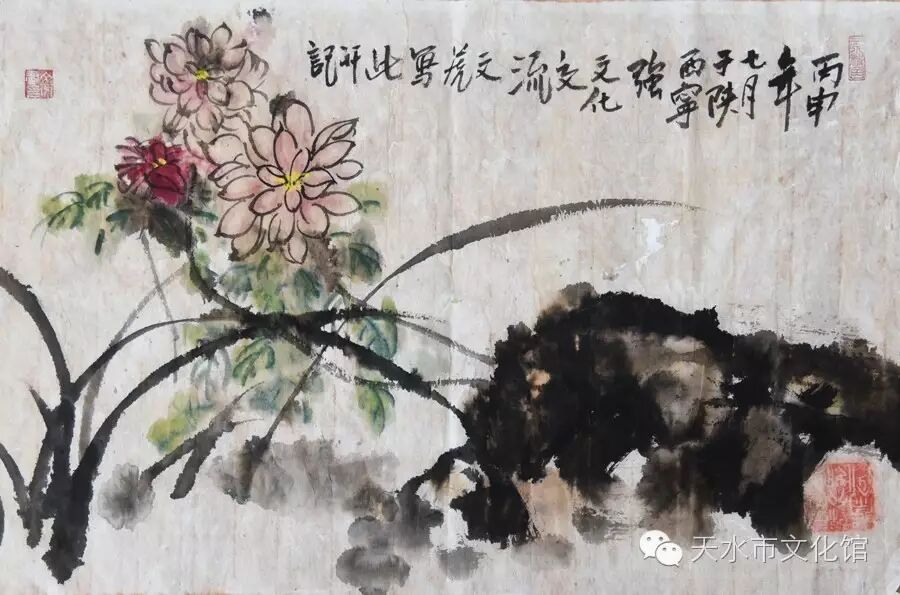 丙申
年
七月
于陕
西寧
强
文化
交
流
文虎
写
此并
記
天水市文化馆